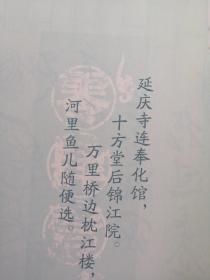 延庆寺连奉化馆，
十方堂后锦江院。
万里桥边枕江楼，
河里鱼儿随便选。